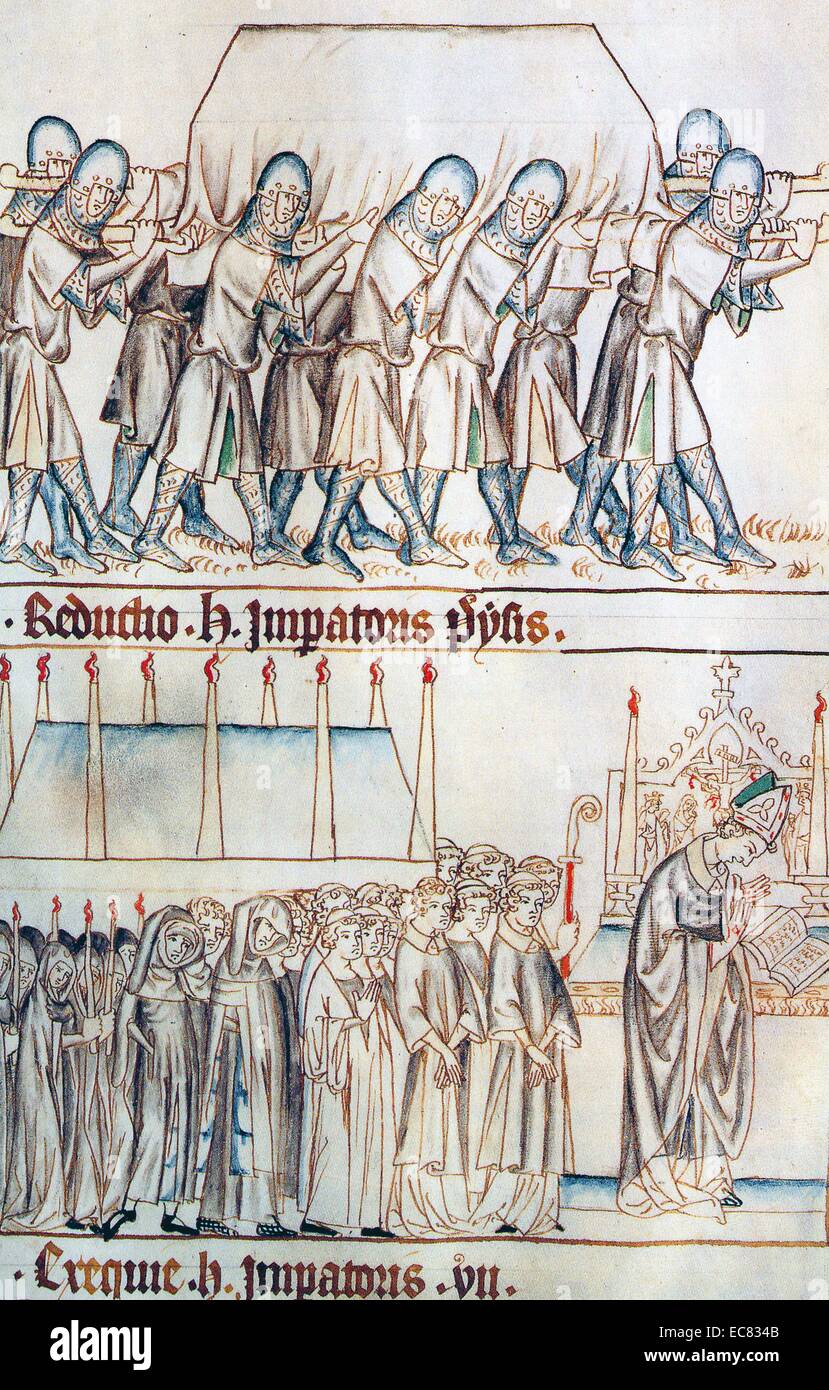 · Reductio · h · Impatoris Pysis ·
· Exequie · h · Impatoris · vii ·
alamy
Image ID: EC834B
www.alamy.com